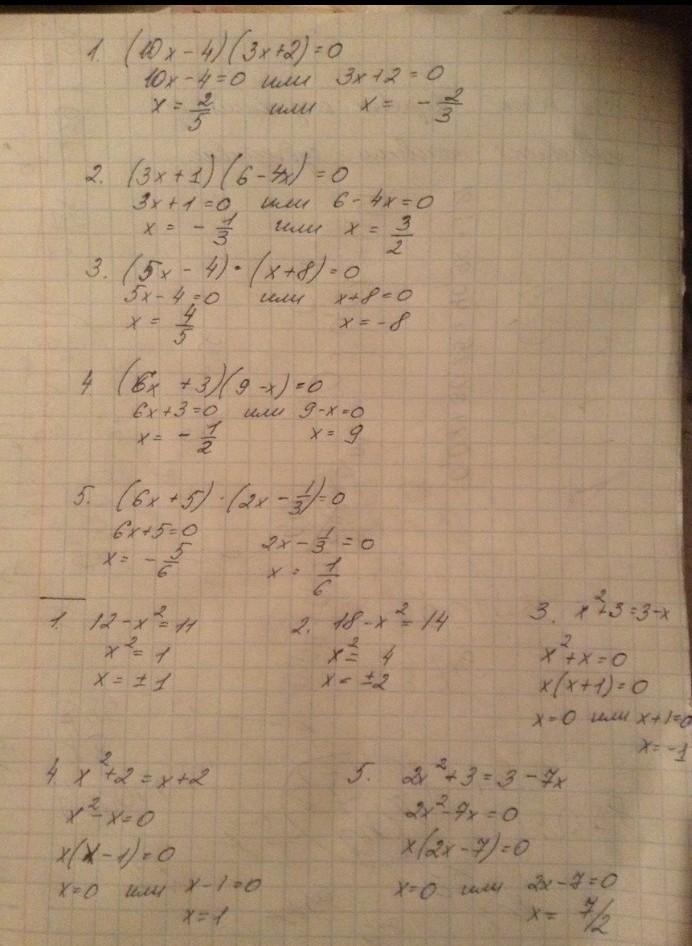 1. (10x - 4)(3x+2)=0
10x-4=0 или 3x+2=0
x = 2/5 или x = - 2/3
2. (3x+1)(6-4x)=0
3x+1=0 или 6-4x=0
x = - 1/3 или x = 3/2
3. (5x - 4)·(x+8)=0
5x-4=0 или x+8=0
x = 4/5 x=-8
4 (6x +3)(9-x)=0
6x+3=0 или 9-x=0
x= - 1/2 x= 9
5. (6x+5)·(2x - 1/3)=0
6x+5=0 2x - 1/3 = 0
x= - 5/6 x = 1/6
1. 12-x²=11
x²=1
x=±1
2. 18-x²=14
x²= 4
x=±2
3. x²+3=3-x
x²+x=0
x(x+1)=0
x=0 или x+1=0
x=-1
4. x²+2=x+2
x²-x=0
x(x-1)=0
x=0 или x-1=0
x=1
5. 2x²+3=3-7x
2x²-7x=0
x(2x-7)=0
x=0 или 2x-7=0
x= 7/2